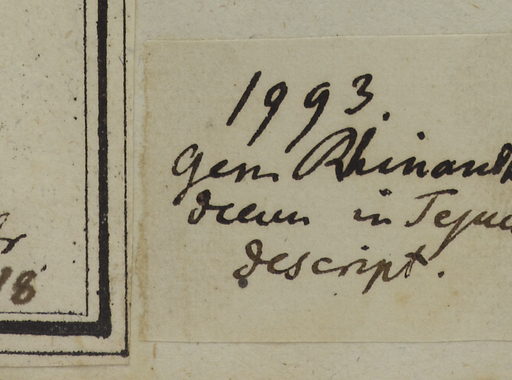 1993.
Gen. Rhinanth
in Teju
descript.
18